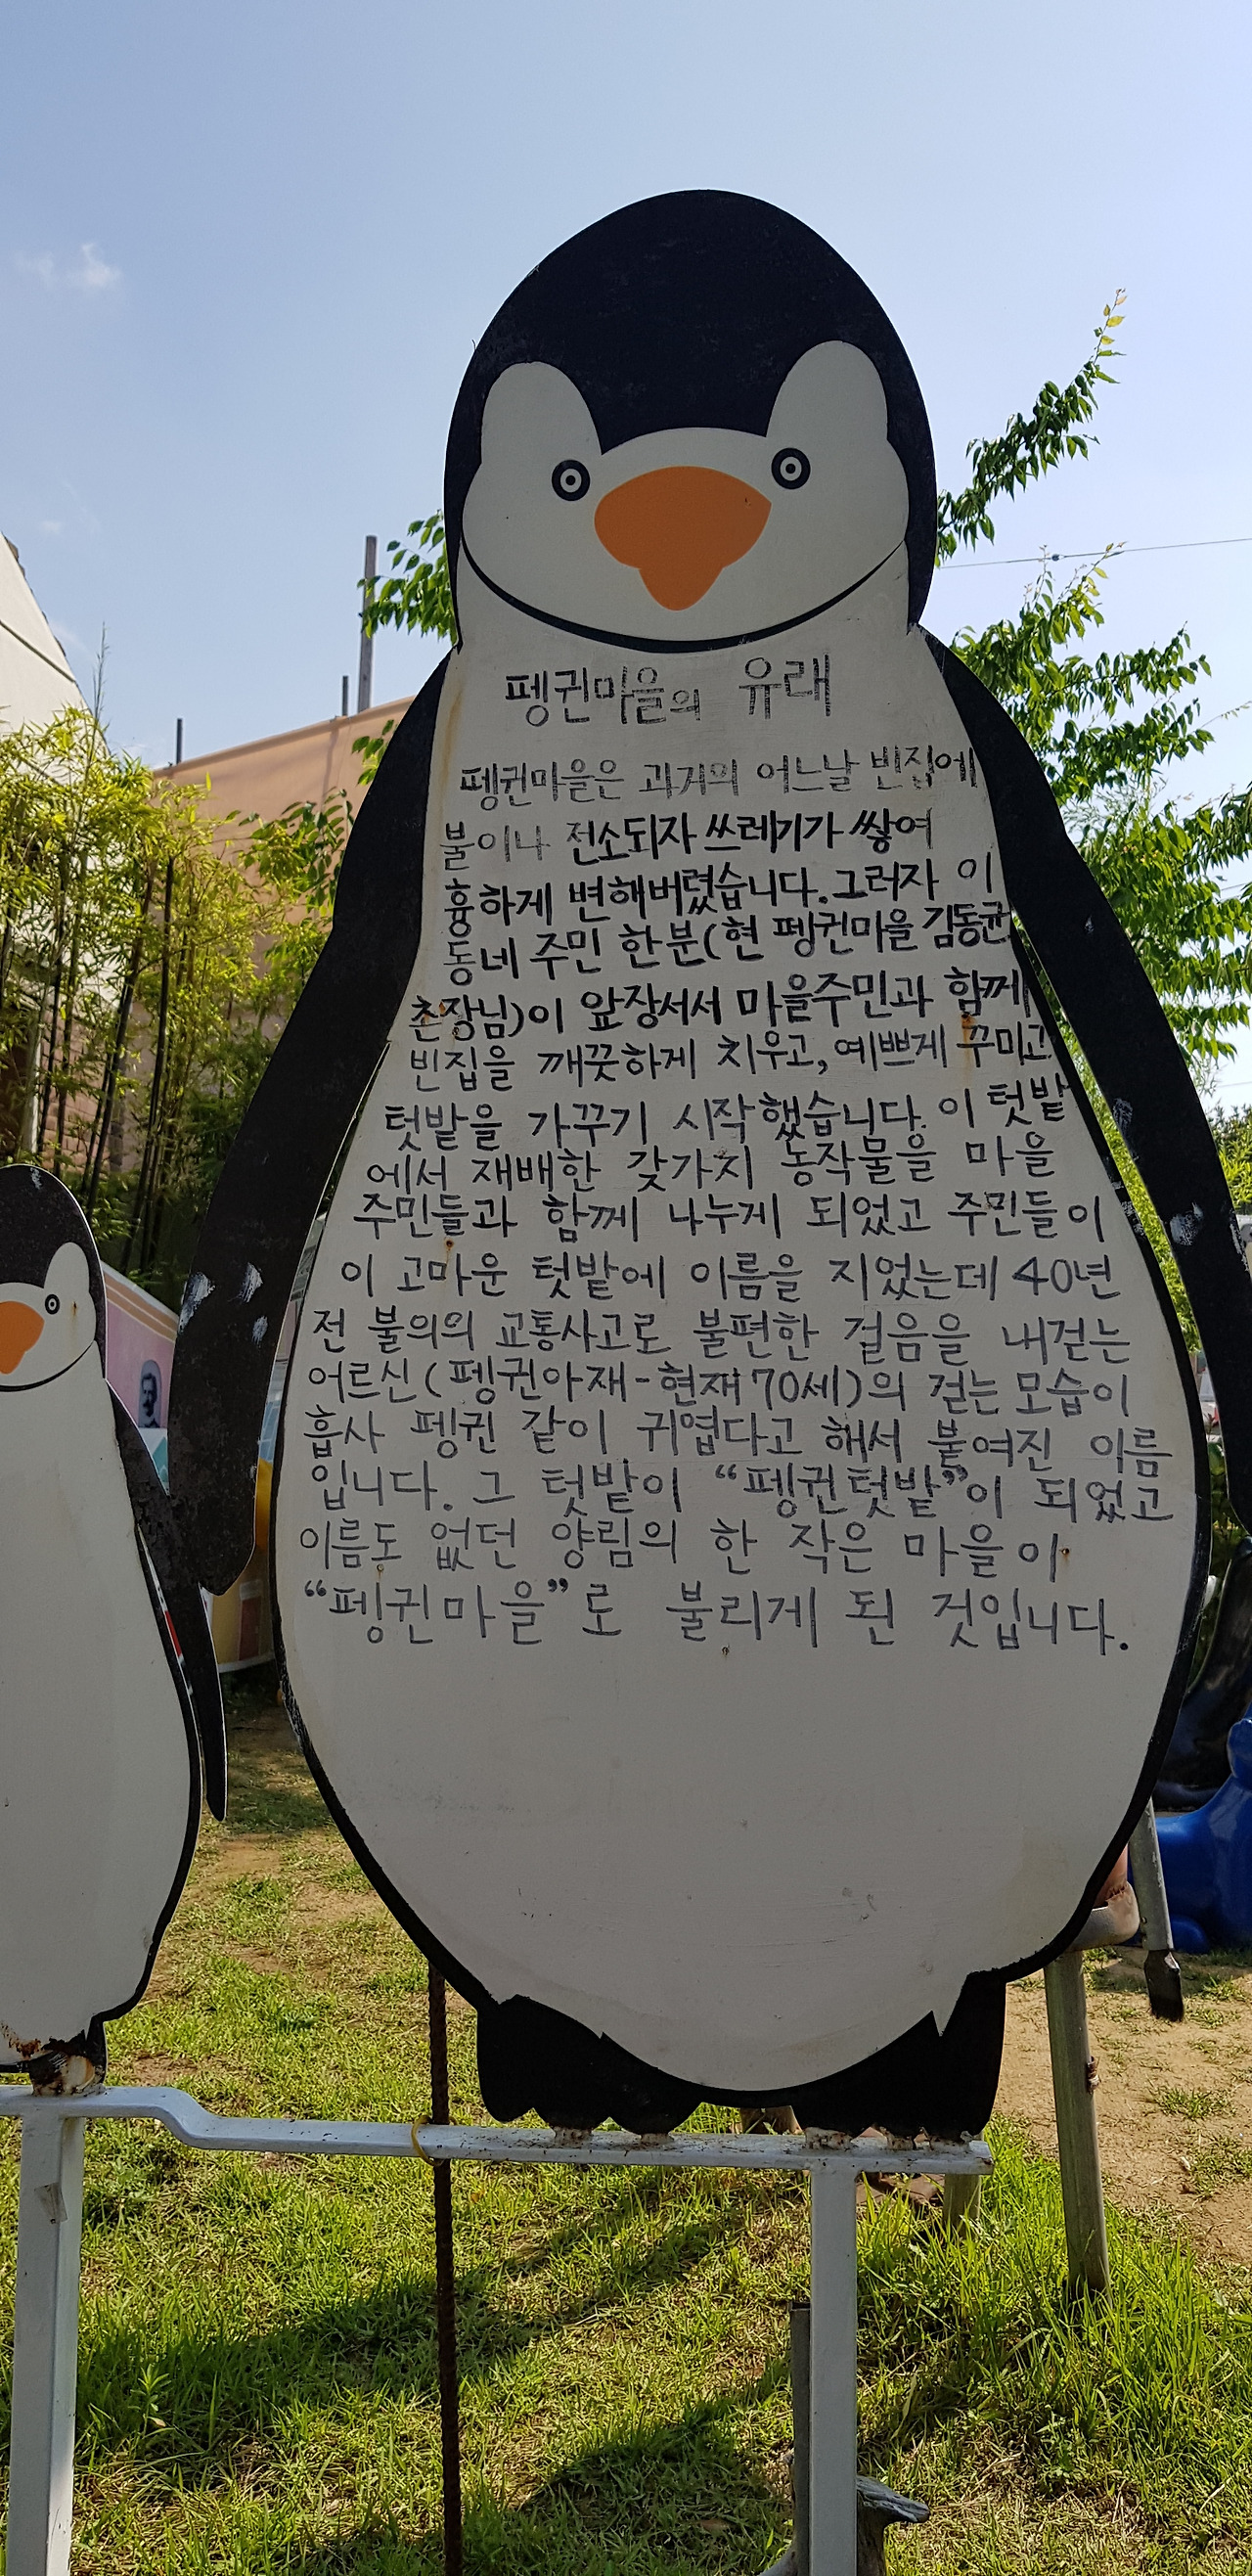 펭귄마을의 유래
펭귄마을은 과거의 어느날 빈집에
불이나 전소되자 쓰레기가 쌓여
흉하게 변해버렸습니다. 그러자 이
동네 주민 한분(현 펭귄마을 김동균
촌장님)이 앞장서서 마을주민과 함께
빈집을 깨끗하게 치우고, 예쁘게 꾸미고
텃밭을 가꾸기 시작했습니다. 이 텃밭
에서 재배한 갖가지 농작물을 마을
주민들과 함께 나누게 되었고 주민들이
이 고마운 텃밭에 이름을 지었는데 40년
전 불의의 교통사고로 불편한 걸음을 내걷는
어르신(펭귄아재-현재70세)의 걷는 모습이
흡사 펭귄 같이 귀엽다고 해서 붙여진 이름
입니다. 그 텃밭이 “펭귄텃밭”이 되었고
이름도 없던 양림의 한 작은 마을이
“펭귄마을”로 불리게 된 것입니다.